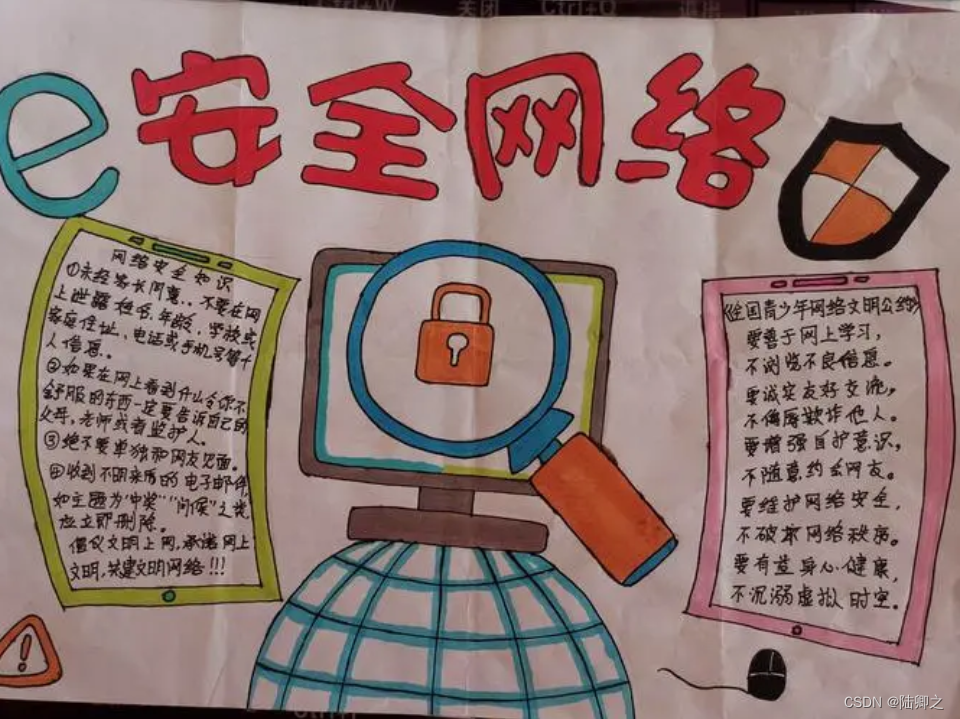 Ctrl+W 关闭 Ctrl+Q 退出
e安全网络
网络安全知识
①未经家长同意..不要在网
上泄露姓名.年龄.学校或
家庭住址.电话或手机号等个
人信息..
②如果在网上看到什么令你不
舒服的东西一定要告诉自己的
父母,老师或者监护人.
③绝不要单独和网友见面。
④收到不明来历的电子邮件,
如主题为"中奖""问候"之类
应立即删除。
倡议文明上网,承诺网上
文明,共建文明网络!!!
《全国青少年网络文明公约》
要善于网上学习,
不浏览不良信息。
要诚实友好交流,
不侮辱欺诈他人。
要增强自护意识,
不随意约会网友。
要维护网络安全,
不破坏网络秩序。
要有益身心健康,
不沉溺虚拟时空。
!
CSDN @陆卿之